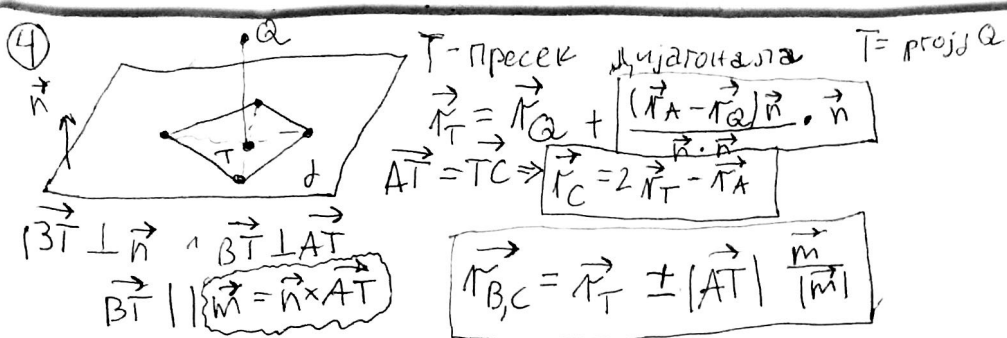 ④ Q T - пресек дијагонала T = projα Q
n⃗ r⃗_T = r⃗_Q + (r⃗_A - r⃗_Q)n⃗ / n⃗ · n⃗ · n⃗
T α A⃗T⃗ = T⃗C⃗ ⇒ r⃗_C = 2r⃗_T - r⃗_A
B⃗T⃗ ⊥ n⃗ ∧ B⃗T⃗ ⊥ A⃗T⃗
B⃗T⃗ || m⃗ = n⃗ × A⃗T⃗
r⃗_B,C = r⃗_T ± |A⃗T⃗| m⃗ / |m⃗|